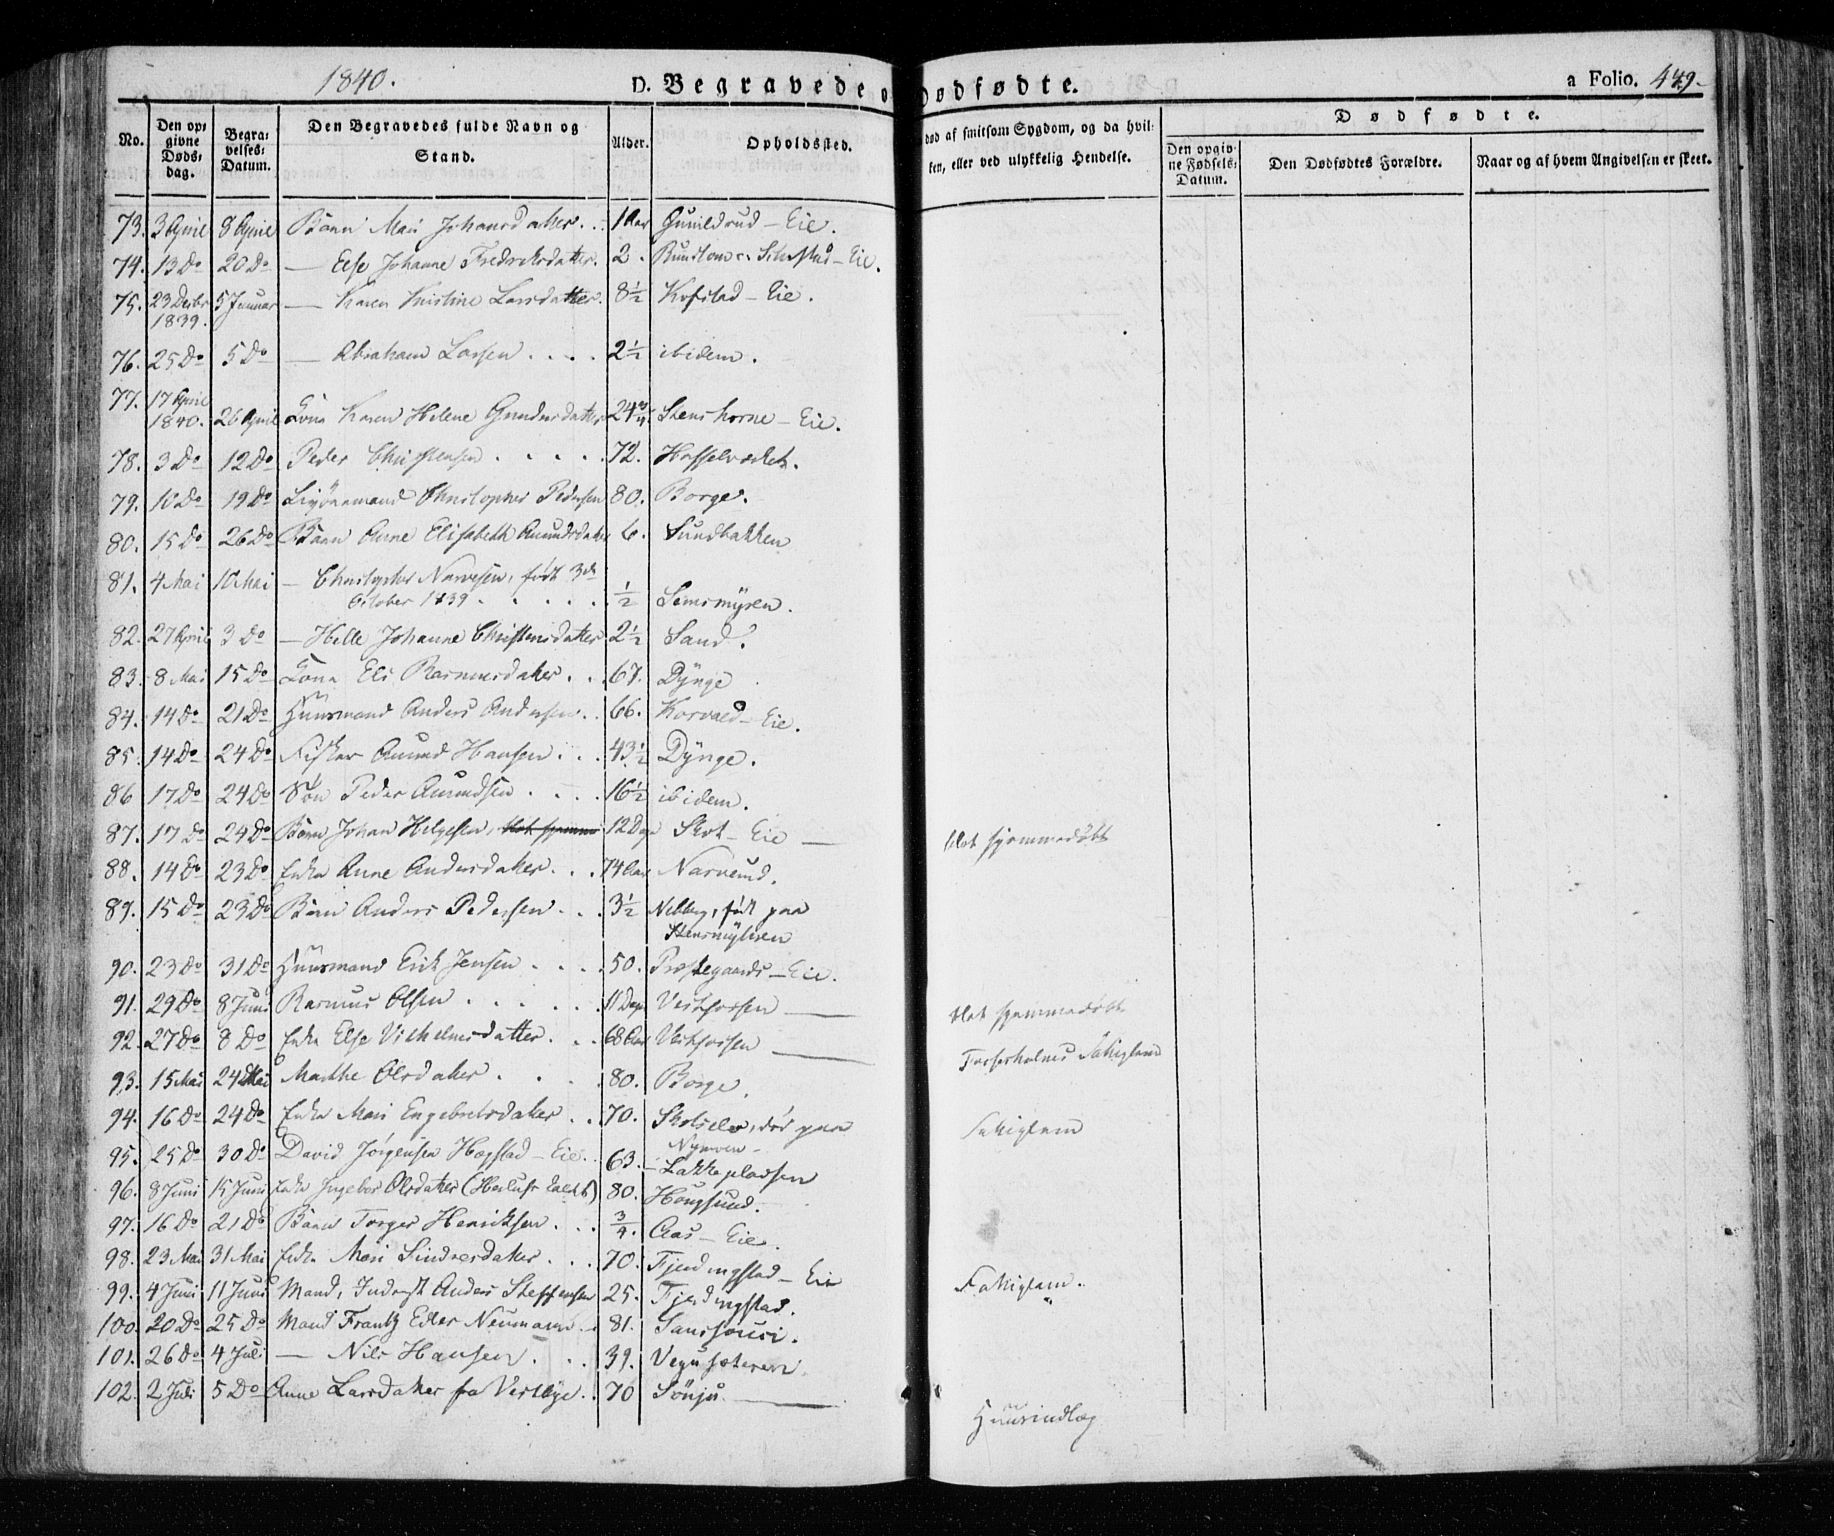 1840.
D. Begravede o Dødfødte.
a Folio. 449.
No.
Den opgivne Døds-dag.
Begravelses-Datum.
Den Begravedes fulde Navn og Stand.
Alder.
Opholdssted.
død af smitsom Sygdom, og da hvil-
ken, eller ved ulykkelig Hendelse.
Dødfødte.
Den opgiv-
ne Fødsels-
Datum.
Den Dødfødtes Forældre.
Naar og af hvem Angivelsen er skeet.
73. 3 April 8 April Barn Mari Johansdatter. 1 Aar Gunildrud - Eie.
74. 13 Do 20 Do — Else Johanne Fredriksdatter. 2. - Eie.
75. 23 Decbr 1839. 5 Januar — Karen Kristine Larsdatter. 8½ Kofstad - Eie.
76. 25 Do 5 Do — Abraham Larsen . . . . 2½ ibidem.
77. 17 April 1840. 26 April Kona Karen Helene Gundersdatter 24¾ Stenshorne - Eie.
78. 3 Do 12 Do Peder Christensen . . . . . 72. Hasselverket.
79. 10 Do 19 Do Christopher Pedersen 80. Borge.
80. 15 Do 26 Do Barn Anne Elisabeth Amundsdatter 6. Sundbakken
81. 4 Mai 10 Mai — Christopher Narvesen, født 3die
October 1839 . . . . . ½ Semsmyren.
82. 27 April 3 Do — Helle Johanne Christensdatter 2½ Sand.
83. 8 Mai 15 Do Kona Eli Rasmusdatter . . . 67. Dynge
84. 14 Do 21 Do Huusmand Anders Andersen . . 66. Korvald - Eie.
85. 14 Do 24 Do Fisker Amund Hansen . . . 43½ Dynge.
86 17 Do 24 Do Søn Peder Amundsen . . . . 16½ ibidem.
87. 17 Do 24 Do Barn Johan Helgesen, 12 Dage Skot - Eie — blot hjemmedøbt
88. 14 Do 23 Do Enke Anne Andersdatter . . . 74 Aar Narverud.
89. 15 Do 23 Do Barn Anders Pedersen . . . 3½ Nebberg, født paa
Stensmyhren
90. 23 Do 31 Do Huusmand Erik Jensen . . . . 50. Præstegaards - Eie.
91. 29 Do 8 Juni Rasmus Olsen . . . . . 11 Dage Vestfossen — blot hjemmedøbt
92. 27 Do 8 Do Enke Else Vilhelmsdatter . . . 68 Aar Vestfossen — Fosserholmes Fattiglem
93. 15 Mai 24 Mai Marthe Olsdatter . . . . 80. Borge.
94. 16 Do 24 Do Enke Mari Engebretsdatter . . 70. Skotselv, død paa
Nymoen - Fattiglem
95. 25 Do 30 Do David Jørgensen Hægstad - Eie. 63. Lakkepladsen
96. 8 Juni 15 Juni Enke Ingebor Olsdatter 80. Hougsund.
97. 16 Do 21 Do Barn Torger Henriksen . . . ¾. Aas - Eie.
98. 23 Mai 31 Mai Enke Mari Sindresdatter . . . 70. Fjerdingstad - Eie Fattiglem.
99. 4 Juni 11 Juni Mand, Inderst Anders Steffensen 25. Fjerdingstad. "
100. 20 Do 25 Do Mand Frantz Edler Neumann . 81. Sanssouci.
101. 26 Do 4 Juli — Nils Hansen . . . 39.
102. 2 Juli 5 Do Anne Larsdatter fra Vestbye . . 70 Sønju. — Huusindlæg